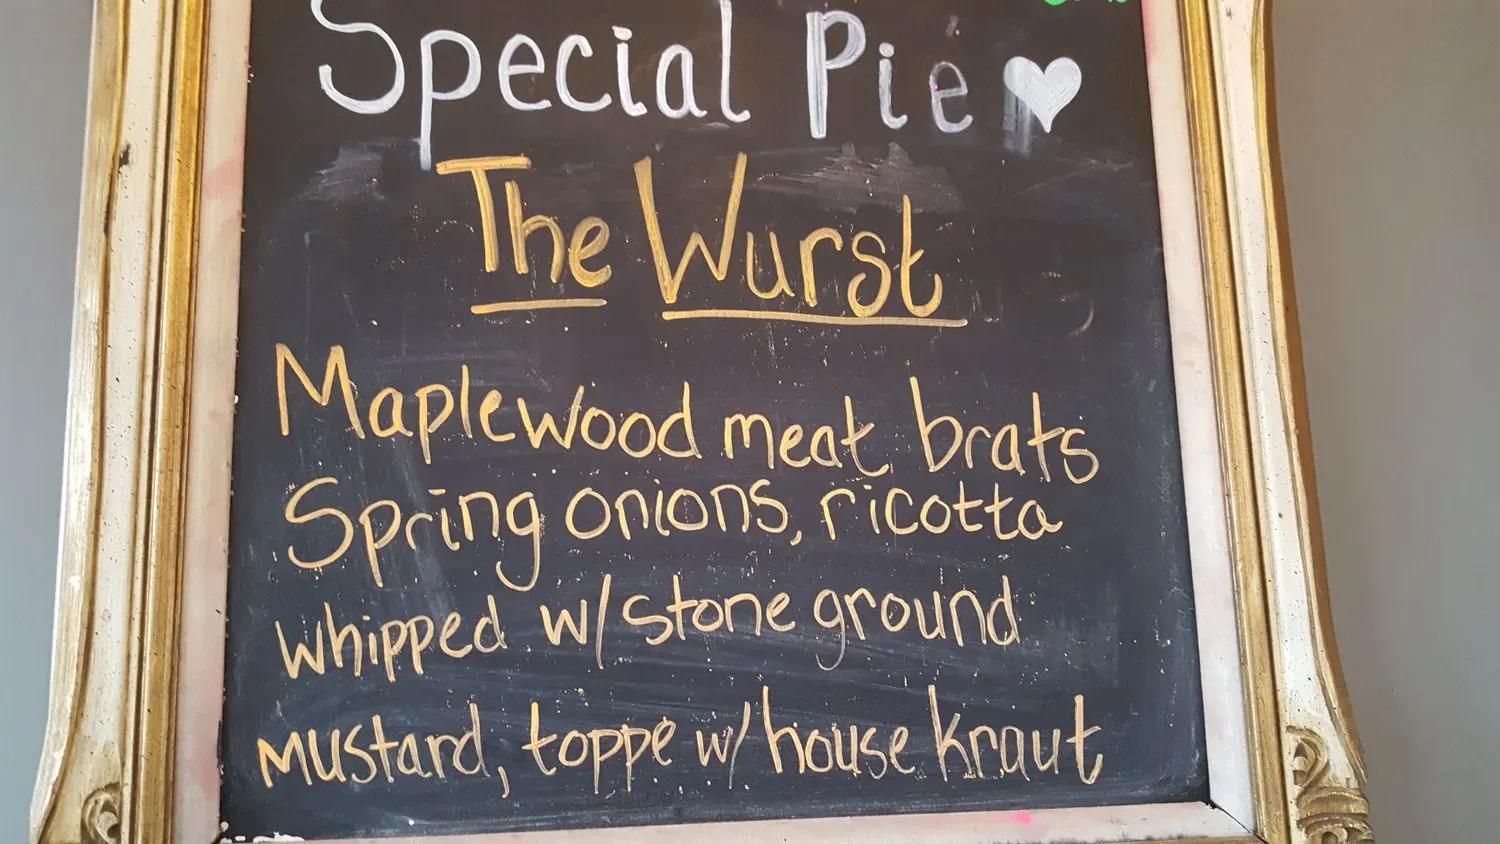 Special Pie
The Wurst
Maplewood meat brats
Spring onions, ricotta
whipped w/ stone ground
mustard, toppe w/ house kraut